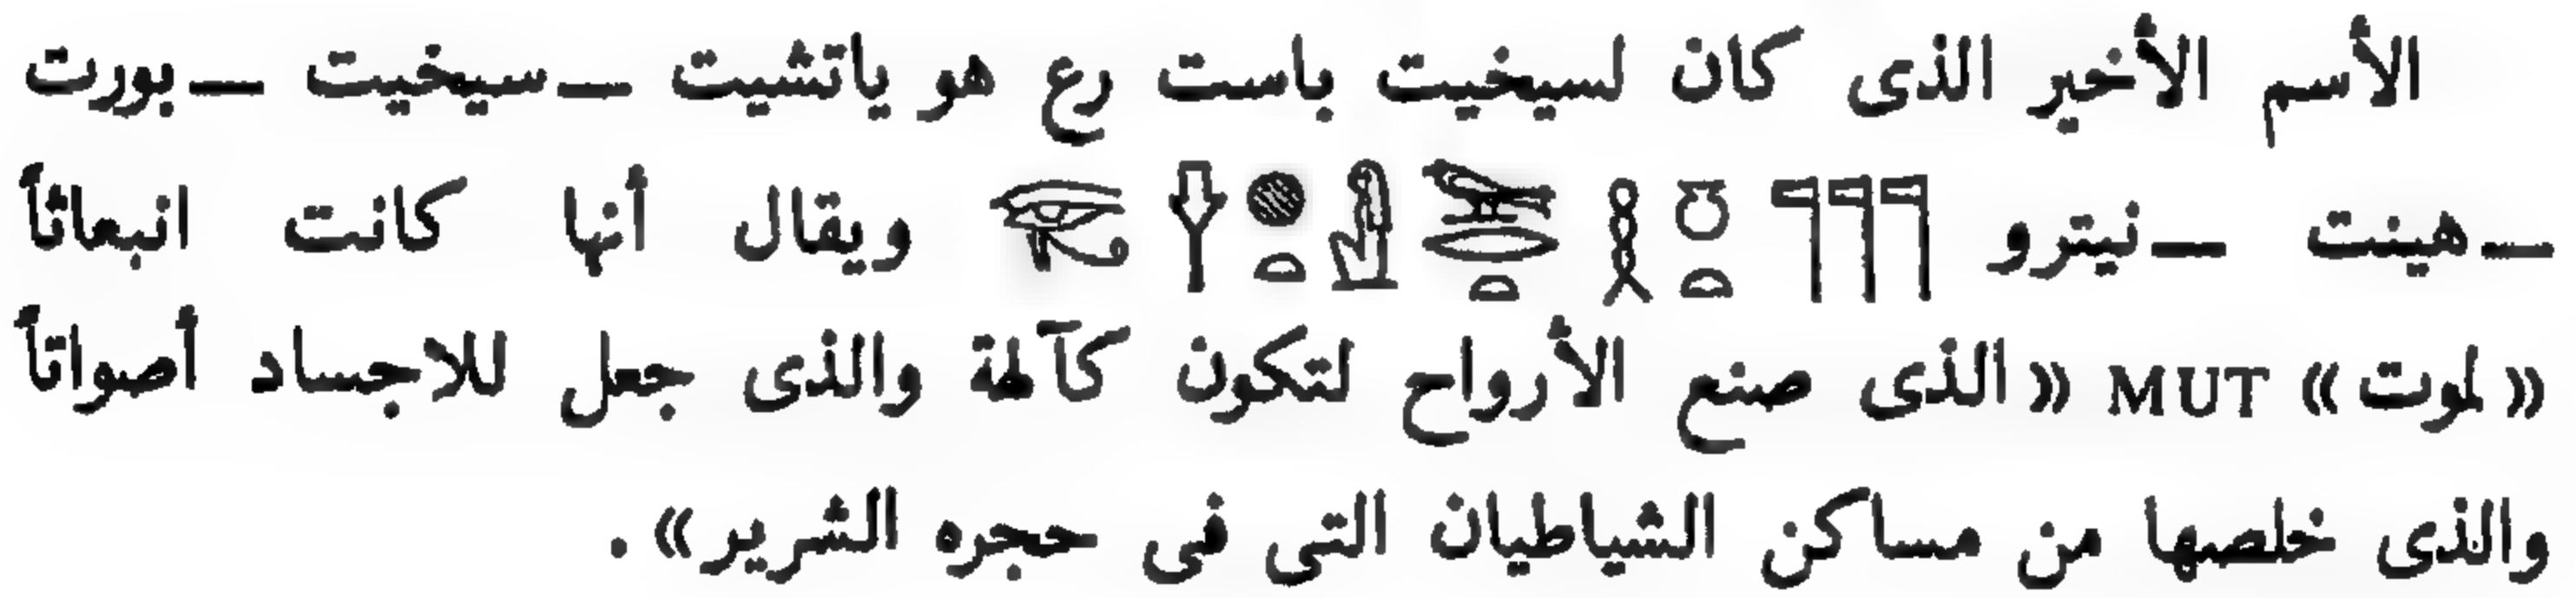 الأسم الأخير الذى كان لسيخيت باست رع هو ياتشيت — سيخيت — بورت
— هينت — نيترو ويقال أنها كانت انبعاثاً
« لموت » MUT « الذى صنع الأرواح لتكون كآلهة والذى جعل للاجساد أصواتاً
والذى خلصها من مساكن الشياطيان التى فى حجره الشرير » .